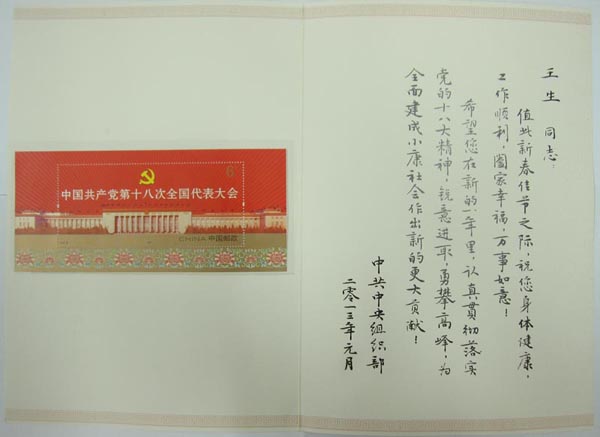 6元
中国共产党第十八次全国代表大会
CHINA 中国邮政
王生同志:
值此新春佳节之际,祝您身体健康,
工作顺利,阖家幸福,万事如意!
希望您在新的一年里,认真贯彻落实
党的十八大精神,锐意进取,勇攀高峰,为
全面建成小康社会作出新的更大贡献!
中共中央组织部
二零一三年元月